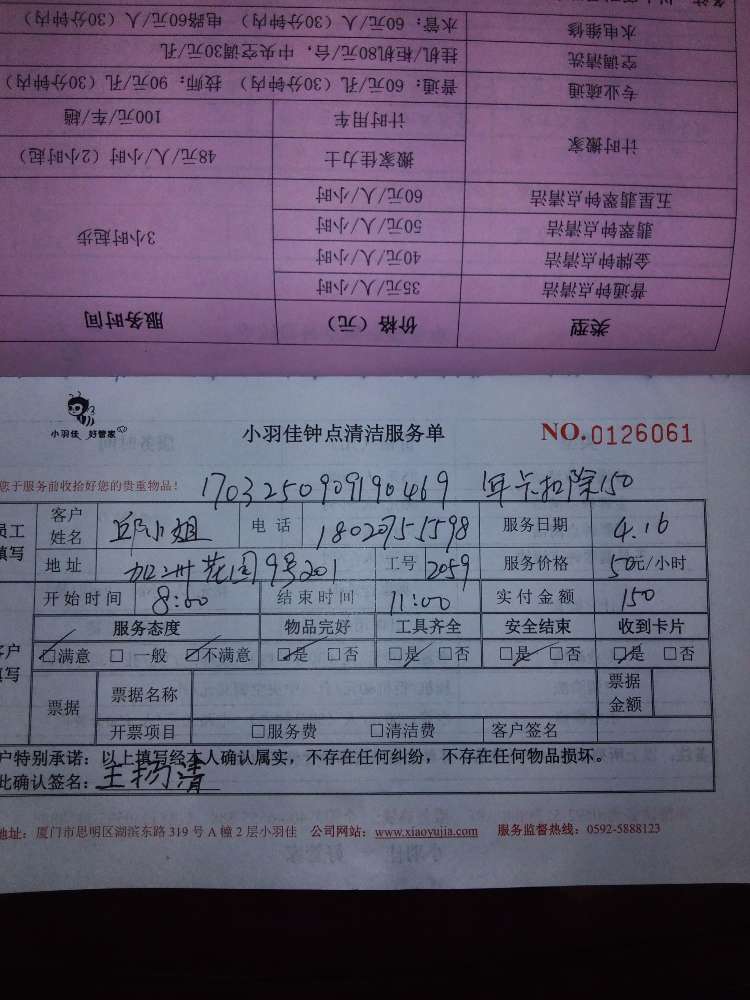 水管：60元/人（30分钟内） 电路60元/人（30分钟内）
水电维修
挂机/柜机80元/台，中央空调30元/孔
空调清洗
普通：60元/孔（30分钟内） 技师：90元/孔（30分钟内）
专业疏通
100元/车/趟
计时用车
计时搬家
48元/人/小时（2小时起）
搬家佳力士
60元/人/小时
五星翡翠钟点清洁
3小时起步
50元/人/小时
翡翠钟点清洁
40元/人/小时
金牌钟点清洁
35元/人/小时
普通钟点清洁
服务时间
价格（元）
类型
小羽佳 好管家
小羽佳钟点清洁服务单
NO.0126061
您于服务前收拾好您的贵重物品！
1703250909190469 年卡扣除150
员工填写
客户姓名 邱小姐 电话 18029751598 服务日期 4.16
地址 加洲花园9号201 工号 2059 服务价格 50元/小时
开始时间 8:00 结束时间 11:00 实付金额 150
客户填写
服务态度 物品完好 工具齐全 安全结束 收到卡片
☑满意 □一般 ☑不满意 ☑是 □否 ☑是 □否 ☑是 ☑否 ☑是 □否
票据 票据名称 票据金额
开票项目 □服务费 □清洁费 客户签名
户特别承诺：以上填写经本人确认属实，不存在任何纠纷，不存在任何物品损坏。
此确认签名：王扬清
地址：厦门市思明区湖滨东路 319 号 A 幢 2 层小羽佳 公司网站：www.xiaoyujia.com 服务监督热线：0592-5888123